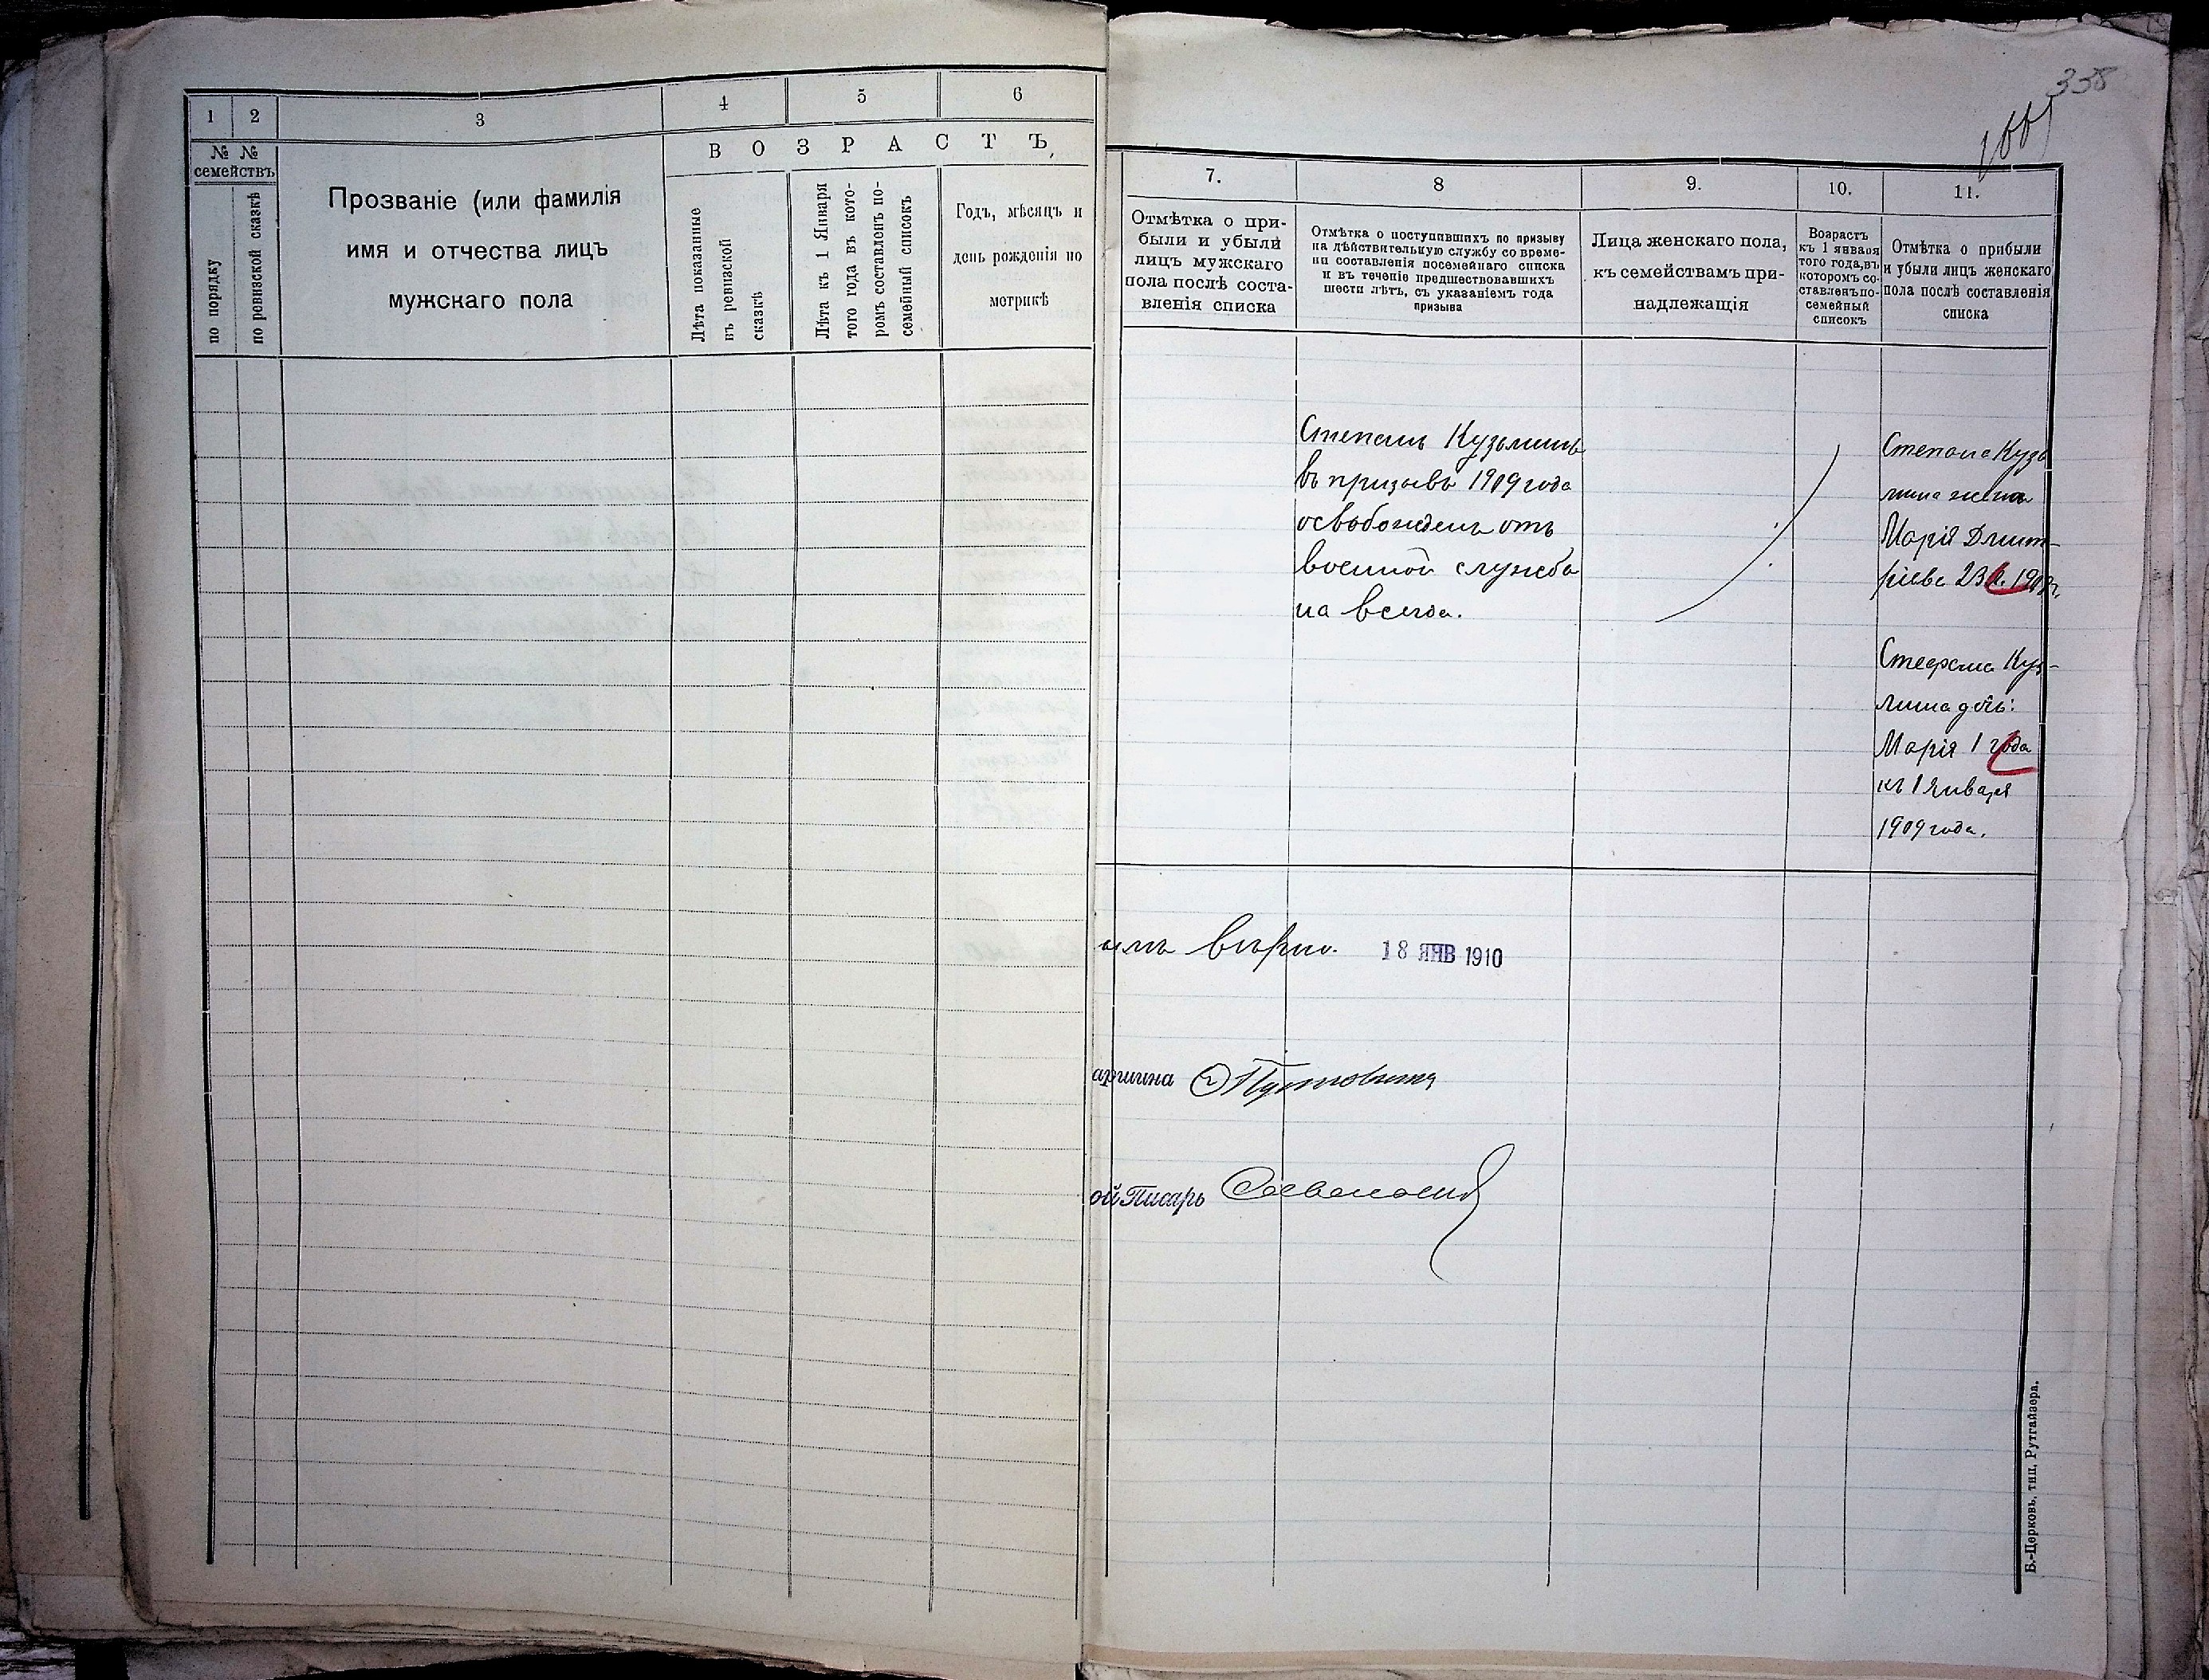 1
2
3
4
5
6
№ №
семействъ
по порядку
по ревизской сказкѣ
Прозваніе (или фамилія
имя и отчества лицъ
мужскаго пола
ВОЗРАСТЪ,
Лѣта показанные
въ ревизской
сказкѣ
Лѣта къ 1 Января
того года въ кото-
ромъ составленъ по-
семейный списокъ
Годъ, мѣсяцъ и
день рожденія по
метрикѣ
338
7.
8
9.
10.
11.
Отмѣтка о при-
были и убыли
лицъ мужскаго
пола послѣ соста-
вленія списка
Отмѣтка о поступившихъ по призыву
на дѣйствительную службу со време-
ни составленія посемейнаго списка
и въ теченіе предшествовавшихъ
шести лѣтъ, съ указаніемъ года
призыва
Лица женскаго пола,
къ семействамъ при-
надлежащія
Возрастъ
къ 1 января
того года, въ
которомъ со-
ставленъ по-
семейный
списокъ
Отмѣтка о прибыли
и убыли лицъ женскаго
пола послѣ составленія
списка
Степанъ Кузьминъ
въ призывъ 1909 года
освобожденъ отъ
военной службы
на всегда.
Степана Кузь
мина жена
Марія Дмит-
ріева 23 л. 1909 г.
Стефана Кузь-
мина дочь:
Марія 1 года
къ 1 Января
1909 года.
вѣрно. 18 ЯНВ 1910
аршина
ой Писарь
Б.-Церковь, тип. Рутгайзера.